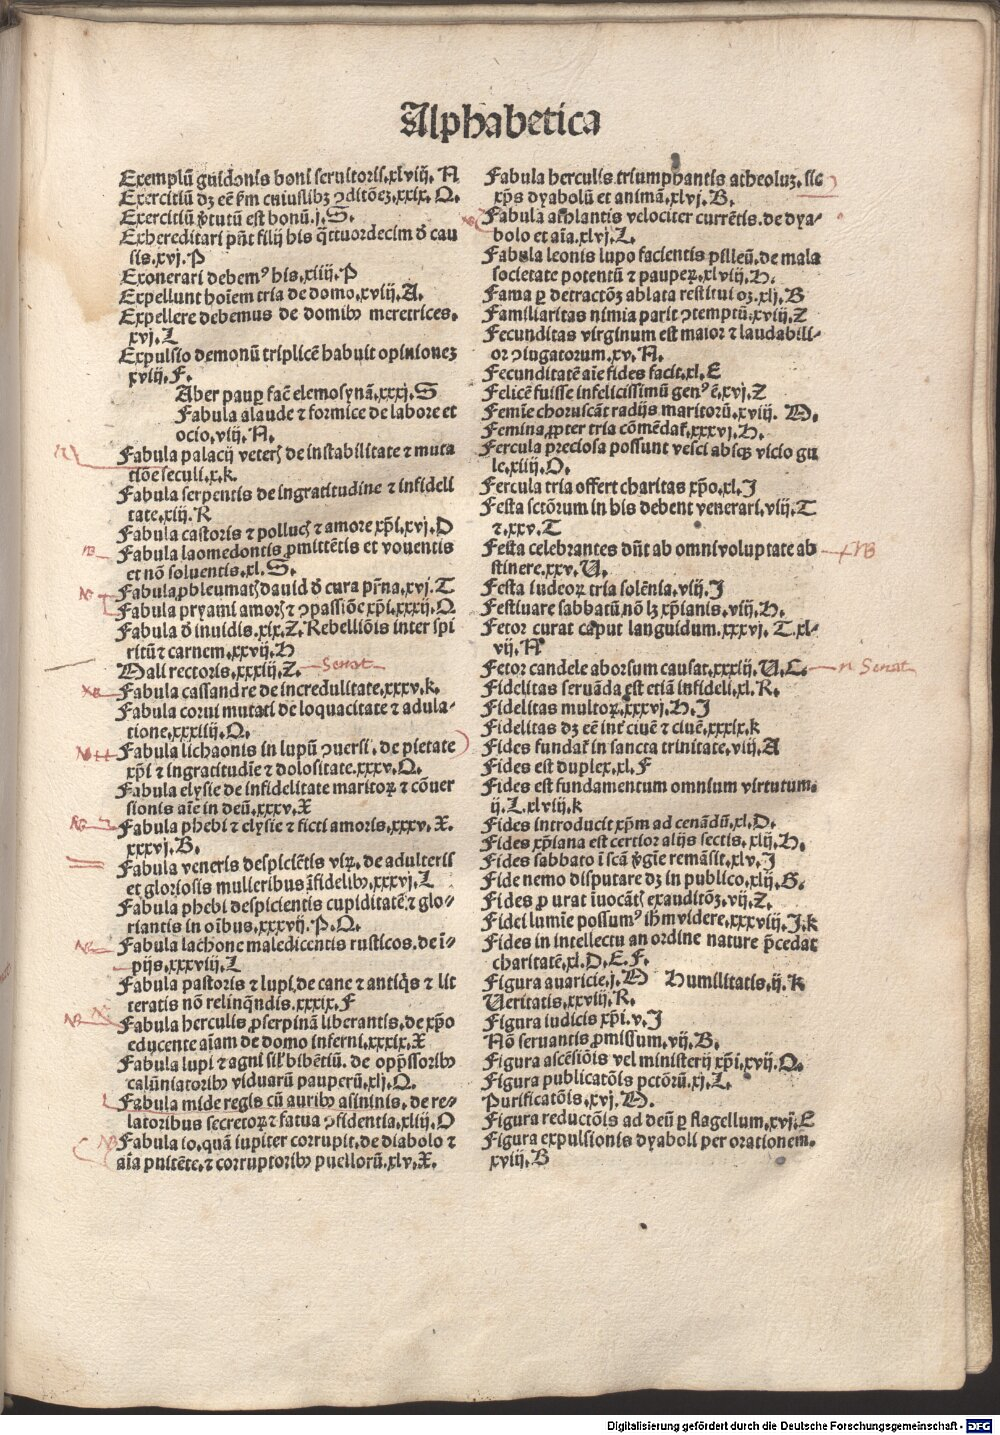 Alphabetica
Exemplũ guidonis boni seruitoris.xlviij. N
Exercitiũ dʒ eẽ ẜm cuiuslibʒ ꝯditõeʒ.xxix. O.
Exercitiũ ꝟtutũ est bonũ.j. S.
Exhereditari pñt filij his q̃ttuordecim ð cau
sis.xvj. P
Exonerari debemꝰ his.xiiij. P
Expellunt hoĩem tria de domo.xviij. A.
Expellere debemus de domibꝫ meretrices.
xvj. L
Expulsio demonũ triplicẽ habuit opinioneʒ
xviij. F.
Aber paup̱ facẽ elemosynã.xxxj. S
Fabula alaude ⁊ formice de labore et
ocio.viij. N.
Fabula palacij veterꝭ de instabilitate ⁊ muta
tiõe seculi.x.k.
Fabula serpentis de ingratitudine ⁊ infideli
tate.xiij. R
Fabula castoris ⁊ polluc̃ ⁊ amore xp̃i.xvj. D
Fabula laomedontis ꝓmittẽtis et vouentis
et nõ soluentis.xl. S.
Fabula ꝓbleumatꝭ dauid ð cura pr̃na.xvj. T
Fabula pryami amorꝭ ⁊ ꝯpassiõe xp̃i.xxxij. O.
Fabula ð inuidis.xix. Z. Rebelliõis inter spi
ritũ ⁊ carnem.xxvij. H
Mali rectoris.xxxiij. Z. Senat
Fabula cassandre de incredulitate.xxxv.k.
Fabula corui mutati de loquacitate ⁊ adula-
tione.xxxiiij. O.
Fabula lichaonis in lupũ ꝯuersi. de pietate
xp̃i ⁊ ingratudĩe ⁊ dolositate.xxxv. O.
Fabula elysie de infidelitate maritoꝝ ⁊ cõuer
sionis aĩe in deũ.xxxv. X
Fabula phebi ⁊ elysie ⁊ ficti amoris.xxxv. X.
xxxvj. B.
Fabula veneris despiciẽtis viꝝ. de adulteris
et gloriosis mulieribus ĩfidelibꝫ.xxxvj. L
Fabula phebi despicientis cupiditatẽ ⁊ glo-
riantis in oĩbus.xxxvij. P. O.
Fabula lachone maledicentis rusticos. de ĩ-
pijs.xxxviij. L
Fabula pastoris ⁊ lupi. de cane ⁊ antiq̃s ⁊ lit
teratis nõ relinq̃ndis.xxxix. F
Fabula herculis ꝓserpinã liberantis. de xp̃o
educente aĩam de domo inferni.xxxix. X
Fabula lupi ⁊ agni sil̃ bibẽtiũ. de opp̃ssoribꝫ
calũniatoribꝫ viduarũ pauperũ.xlj. O.
Fabula mide regis cũ auribꝫ asininis. de re-
latoribus secretoꝝ ⁊ fatua ꝯfidentia.xliij. O
Fabula io. quã iupiter corrupit. de diabolo ⁊
aĩa puitẽte. ⁊ corruptoribꝫ puellorũ.xlv. X.
Fabula herculis triumphantis atheoluʒ. sic
xp̃s dyabolũ et animã.xlvj. B.
Fabula athlantis velociter currẽtis. de dya-
bolo et aĩa.xlvj. L.
Fabula leonis lupo facientis pilleũ. de mala
societate potentũ ⁊ pauperꝝ.xlviij. H.
Fama ꝑ detractõʒ ablata restitui oʒ.xlj. B
Familiaritas nimia parit ꝯtemptũ.xviij. Z
Fecunditas virginum est maior ⁊ laudabili-
or ꝯiugatorum.xv. N.
Fecunditatẽ aĩe fides facit.xl. E
Felicẽ fuisse infelicissimũ genꝰ ẽ.xvj. Z
Femĩe choruscãt radijs maritorũ.xviij. M.
Femina ꝓpter tria cõmẽdat̃.xxxvj. H.
Fercula preciosa possunt vesci absqꝫ vicio gu
le.xiiij. O.
Fercula tria offert charitas xp̃o.xl. J
Festa sctõrum in his debent venerari.viij. T
⁊.xxv. T
Festa celebrantes dñt ab omni voluptate ab NB
stinere.xxv. U.
Festa iudeoꝝ tria solẽnia.viij. J
Festiuare sabbatũ nõ lʒ xp̃ianis.viij. H.
Fetor curat caput languidum.xxxvj. T. xl-
vij. N
Fetor candele aborsum causat.xxxiij. U. C. n Senat
Fidelitas seruãda est etiã infideli.xl. R.
Fidelitas multoꝝ.xxxvj. H. J
Fidelitas dʒ eẽ int̃ ciuẽ ⁊ ciuẽ.xxxix.k
Fides fundat̃ in sancta trinitate.viij. A
Fides est duplex.xl. F
Fides est fundamentum omnium virtutum.
ij. L. xlviij.k
Fides introducit xp̃m ad cenãdũ.xl. D.
Fides xp̃iana est certior alijs sectis.xlij. H.
Fides sabbato ĩ scã ꝟgĩe remãsit.xlv. J
Fide nemo disputare dʒ in publico.xlij. G.
Fides ꝓ urat ĩuocãtꝭ exauditõʒ.vij. Z.
Fidei lumĩe possumꝰ ihm̃ videre.xxxviij. J.k
Fides in intellectu an ordine nature p̃cedat
charitatẽ.xl. D. E. F.
Figura auaricie.j. M Humilitatis.ij. k
Ueritatis.xxviij. R.
Figura iudicis xp̃i.v. J
Nõ seruantis ꝓmissum.vij. B.
Figura ascẽsiõis vel ministerij xp̃i.xvij. O.
Figura publicatõis pctõrũ.xj. L.
Purificatõis.xvj. M.
Figura reductõis ad deũ ꝑ flagellum.xvj. E
Figura expulsionis dyaboli per orationem.
xviij. B
Digitalisierung gefördert durch die Deutsche Forschungsgemeinschaft - DFG